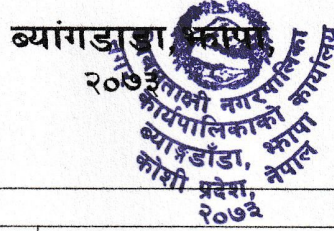 ब्यांगडाडा, झापा,
२०७३
नगरपालिका
कार्यपालिकाको कार्यालय
ब्याङडाँडा, झापा
कोशी प्रदेश, नेपाल
२०७३